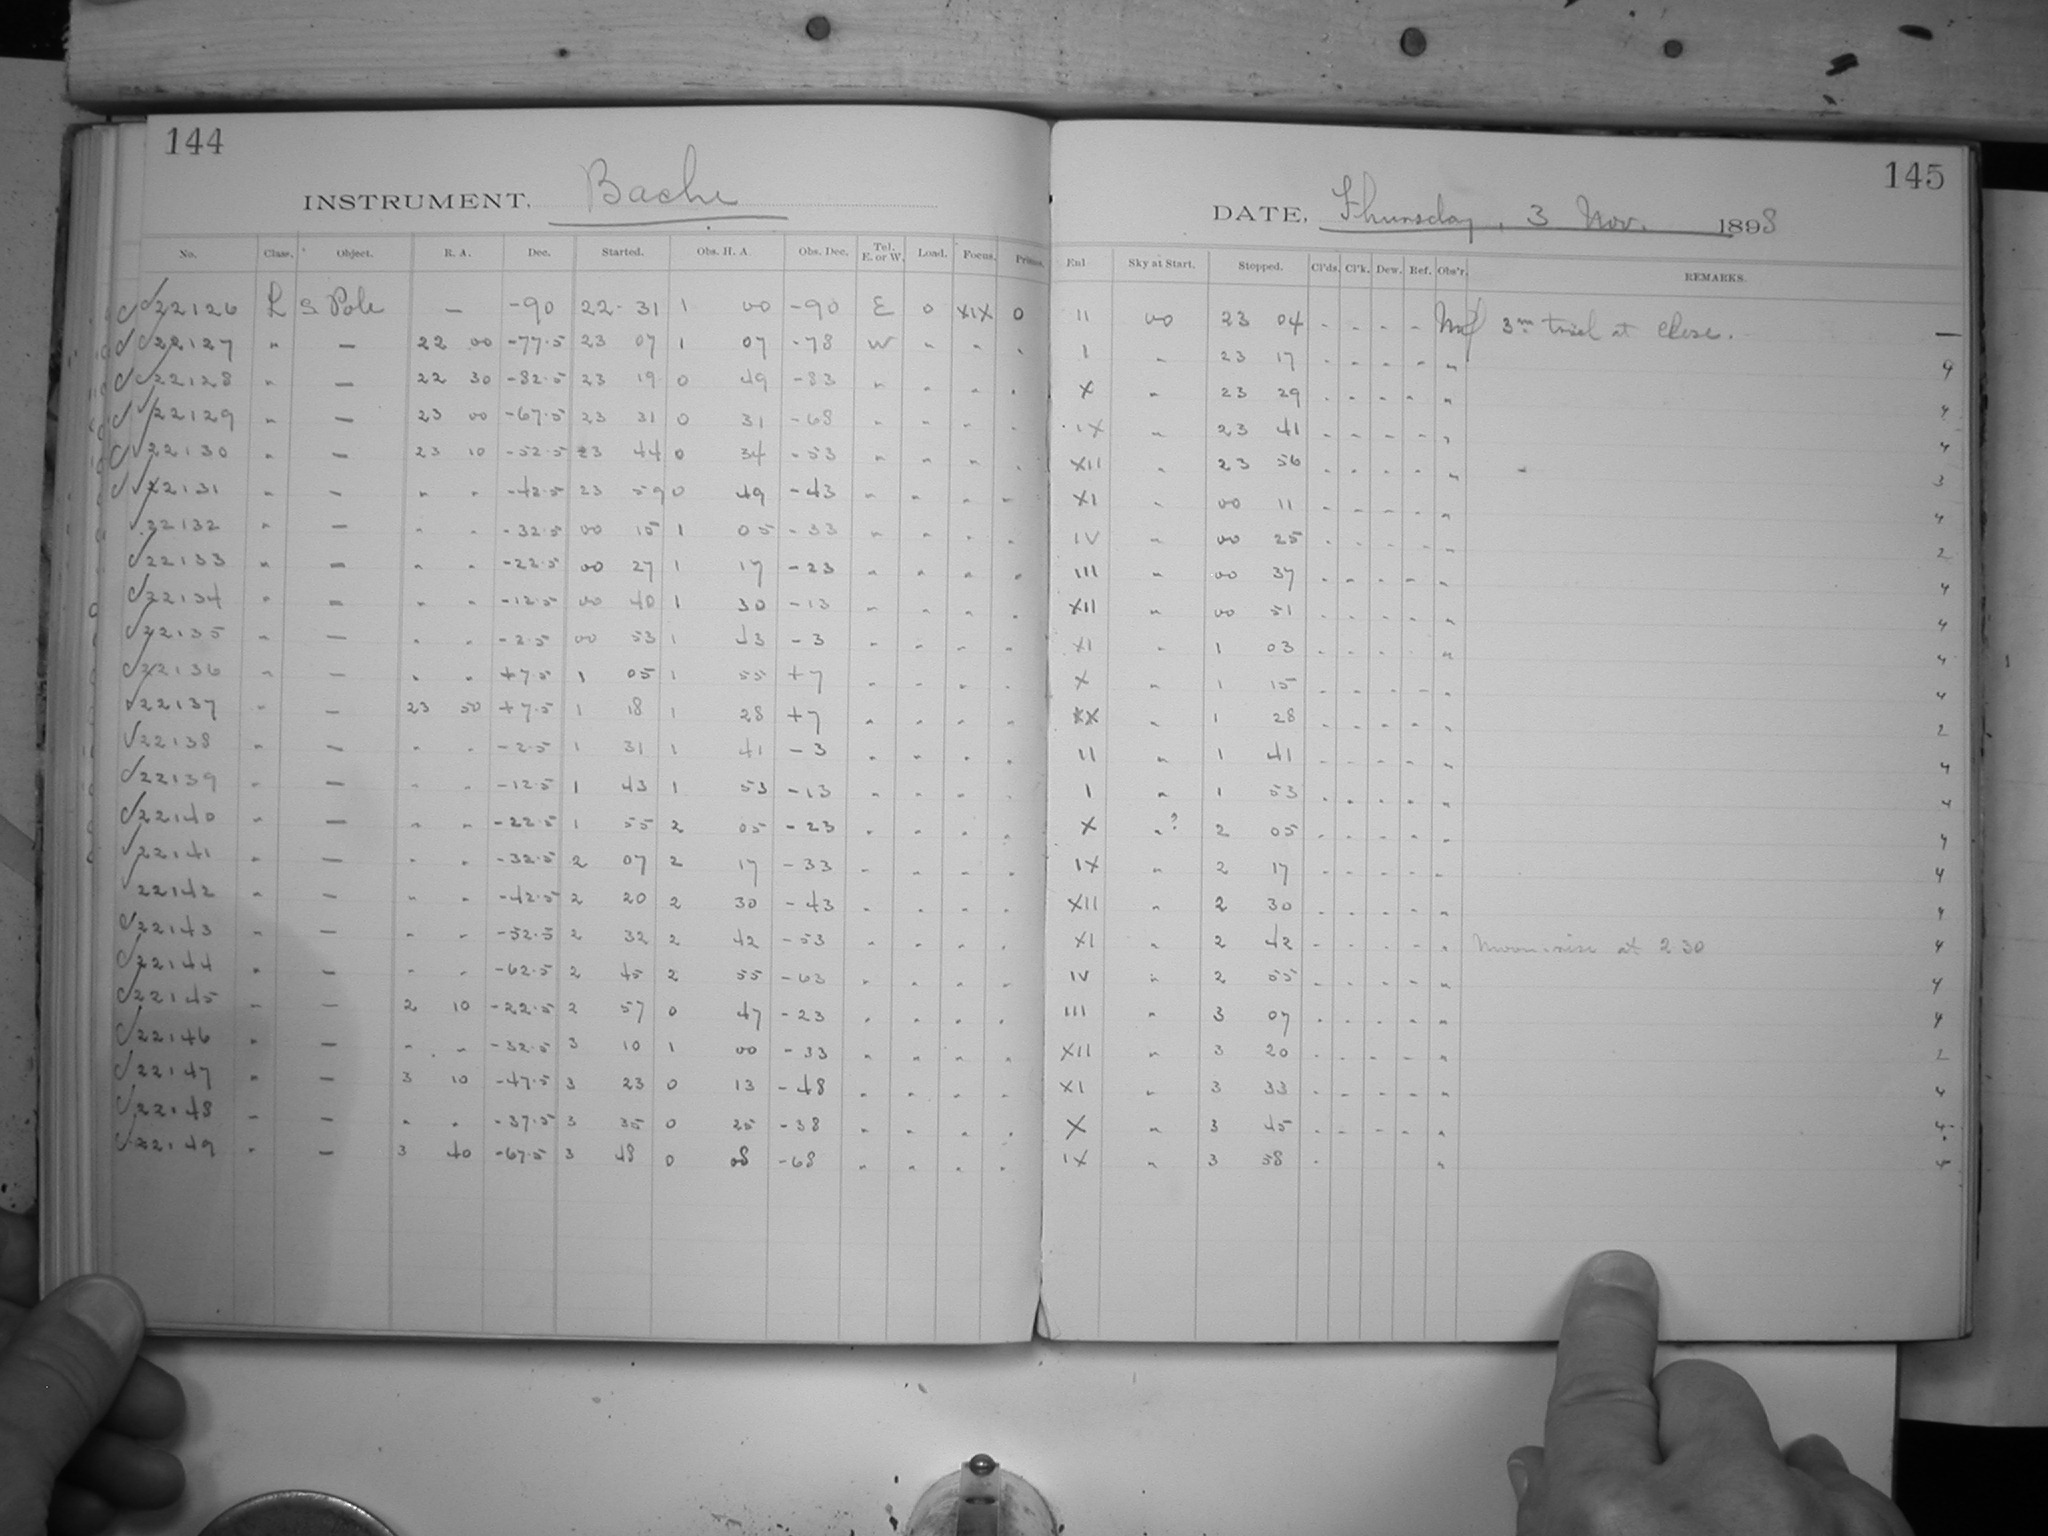 144
INSTRUMENT. Bache
No. Class. Object. R. A. Dec. Started. Obs. H. A. Obs. Dec. Tel. E. or W. Load. Focus.
22126 L S Pole — -90 22 31 1 00 -90 E 0 XIX 0
22127 " — 22 00 -77.5 23 07 1 07 -78 W " " "
22128 " — 22 30 -82.5 23 19 0 49 -83 " " " "
22129 " — 23 00 -67.5 23 31 0 31 -68 " " " "
22130 " — 23 10 -52.5 23 44 0 34 -53 " " " "
22131 " — " " -42.5 23 59 0 49 -43 " " " "
22132 " — " " -32.5 00 15 1 05 -33 " " " "
22133 " — " " -22.5 00 27 1 17 -23 " " " "
22134 " — " " -12.5 00 40 1 30 -13 " " " "
22135 " — " " -2.5 00 53 1 43 -3 " " " "
22136 " — " " +7.5 1 05 1 55 +7 " " " "
22137 " — 23 50 +7.5 1 18 1 28 +7 " " " "
22138 " — " " -2.5 1 31 1 41 -3 " " " "
22139 " — " " -12.5 1 43 1 53 -13 " " " "
22140 " — " " -22.5 1 55 2 05 -23 " " " "
22141 " — " " -32.5 2 07 2 17 -33 " " " "
22142 " — " " -42.5 2 20 2 30 -43 " " " "
22143 " — " " -52.5 2 32 2 42 -53 " " " "
22144 " — " " -62.5 2 45 2 55 -63 " " " "
22145 " — 2 10 -22.5 2 57 0 47 -23 " " " "
22146 " — " " -32.5 3 10 1 00 -33 " " " "
22147 " — 3 10 -47.5 3 23 0 13 -48 " " " "
22148 " — " " -37.5 3 35 0 25 -38 " " " "
22149 " — 3 40 -67.5 3 48 0 08 -68 " " " "
145
DATE, Thursday, 3 Nov. 1898
Sky at Start. Stopped. Cl'ds. Cl'k. Dew. Ref. Obs'r. REMARKS.
II 00 23 04 " " " " 3m trial at close. —
I " 23 17 " " " " " 4
X " 23 29 " " " " " 4
IX " 23 41 " " " " " 4
XII " 23 56 " " " " " 3
XI " 00 11 " " " " " 4
IV " 00 25 " " " " " 2
III " 00 37 " " " " " 4
XII " 00 51 " " " " " 4
XI " 1 03 " " " " " 4
X " 1 15 " " " " " 4
XX " 1 28 " " " " " 2
II " 1 41 " " " " " 4
I " 1 53 " " " " " 4
X " ? 2 05 " " " " " 4
IX " 2 17 " " " " " 4
XII " 2 30 " " " " " 4
XI " 2 42 " " " " " Moon-rise at 2 30 4
IV " 2 55 " " " " " 4
III " 3 07 " " " " " 4
XII " 3 20 " " " " " 2
XI " 3 33 " " " " " 4
X " 3 45 " " " " " 4
IX " 3 58 " " 4